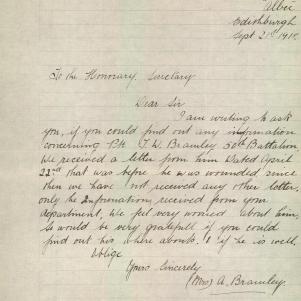 Albie
Edithburgh
Sept 21st 191
To the Honorary Secretary
Dear Sir
I am writing to ask
you, if you could find out any information
concerning Pte T. W. Bramley 50th Battalion
We received a letter from him Dated April
22nd that was before he was wounded since
then we have not received any other letter,
only the Information, received from your
department, We feel very worried about him,
& would be very gratefull if you could
find out his where abouts, & if he is well
Oblige
Yours Sincerely
(Mrs) A. Bramley.